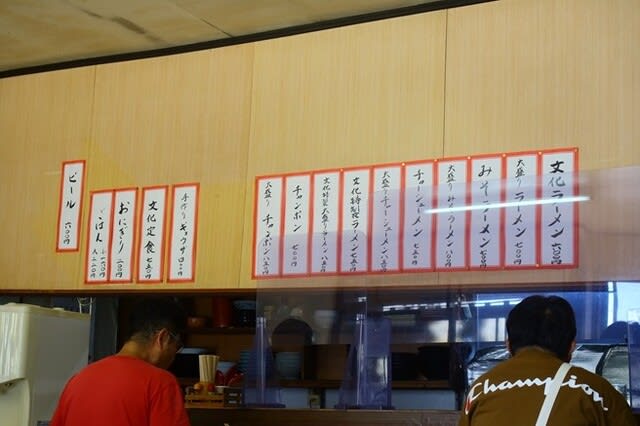 文化ラーメン 六〇〇円
大盛り ラーメン 七〇〇円
みそラーメン 七〇〇円
大盛り みそラーメン 八〇〇円
チャーシューメン 七五〇円
大盛り チャーシューメン 八五〇円
文化特製ラーメン 七五〇円
文化特製大盛りラーメン 八五〇円
チャンポン 七〇〇円
大盛り チャンポン 八五〇円
手作り ギョウザ
文化定食 七五〇円
おにぎり 二〇〇円
ごはん
ビール 六〇〇円
Champion